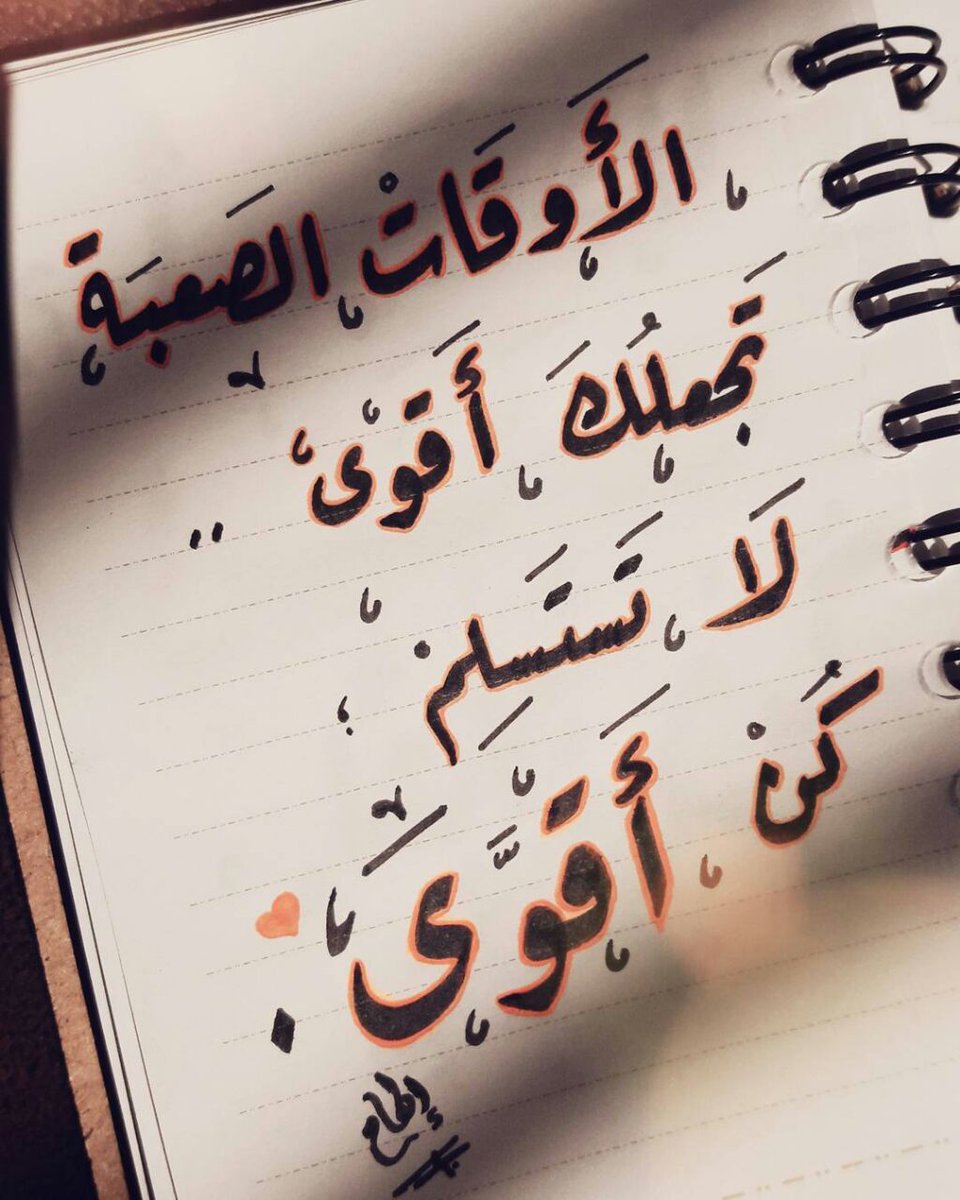 الأَوقَاتْ الصَعبَة
تَجعلُكَ أَقوىٰ ..
لَا تَستَسلِمْ
كُنْ أَقوَّىَ .
إلهام